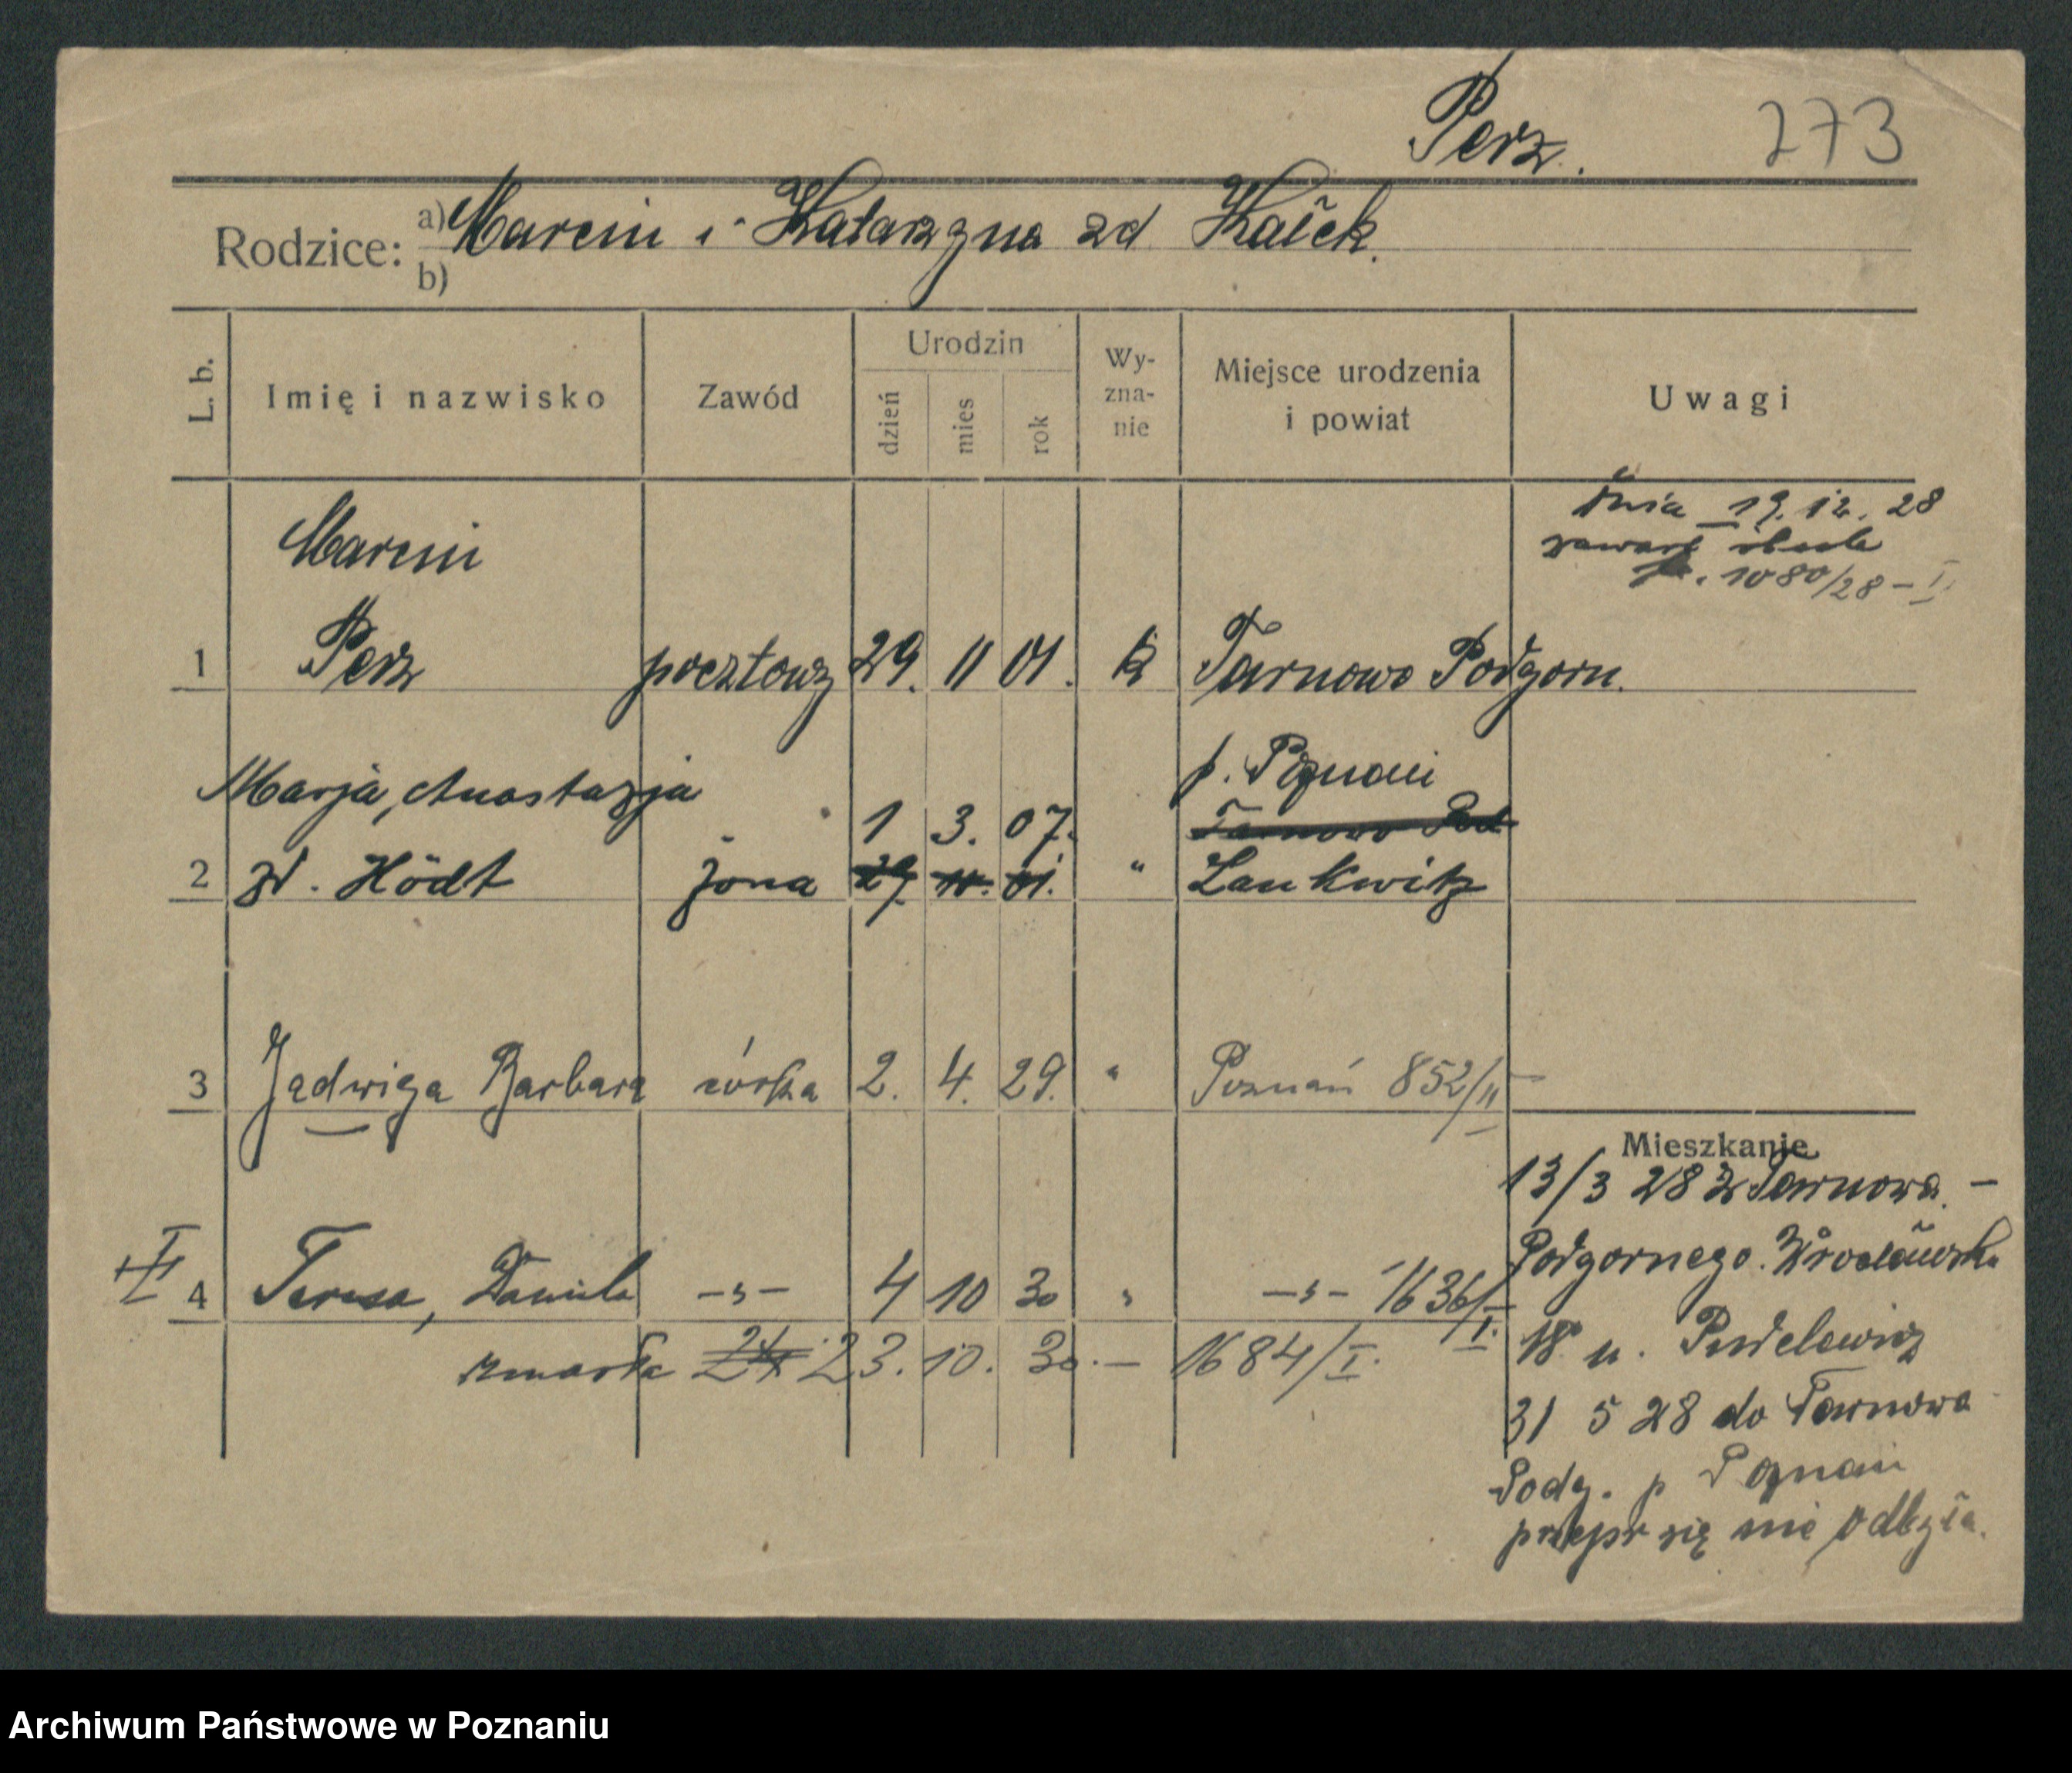 Perz. 273
Rodzice: a) Marcin i Katarzyna zd Kaiek.
b)
L. b. Imię i nazwisko Zawód Urodzin dzień mies rok Wy-zna-nie Miejsce urodzenia i powiat Uwagi
Dnia 19. 12. 28
zawarł ślub
1080/28 - I.
Marcin
1 Perz pocztowy 29. 11 01. k Tarnowo Podgorn.
p. Poznań
Marja, Anastazja 1 3. 07. Tarnowo Pod
2 zd. Hödt żona 29. 11. 01. " Lankwitz
3 Jadwiga Barbara córka 2. 4. 29. " Poznań 852/II
Mieszkanie
13/3 28 z Tarnowa -
Podgornego. Wrocławsk.
4 Teresa, Danuta -"- 4 10 30 " -"- 1636/I.
18 u. Pudelewicz
zmarła 24 23. 10. 30. - 1684/I.
31 5 28 do Tarnowa
Podg. p Poznań
przepr się nie odbyła.
Archiwum Państwowe w Poznaniu